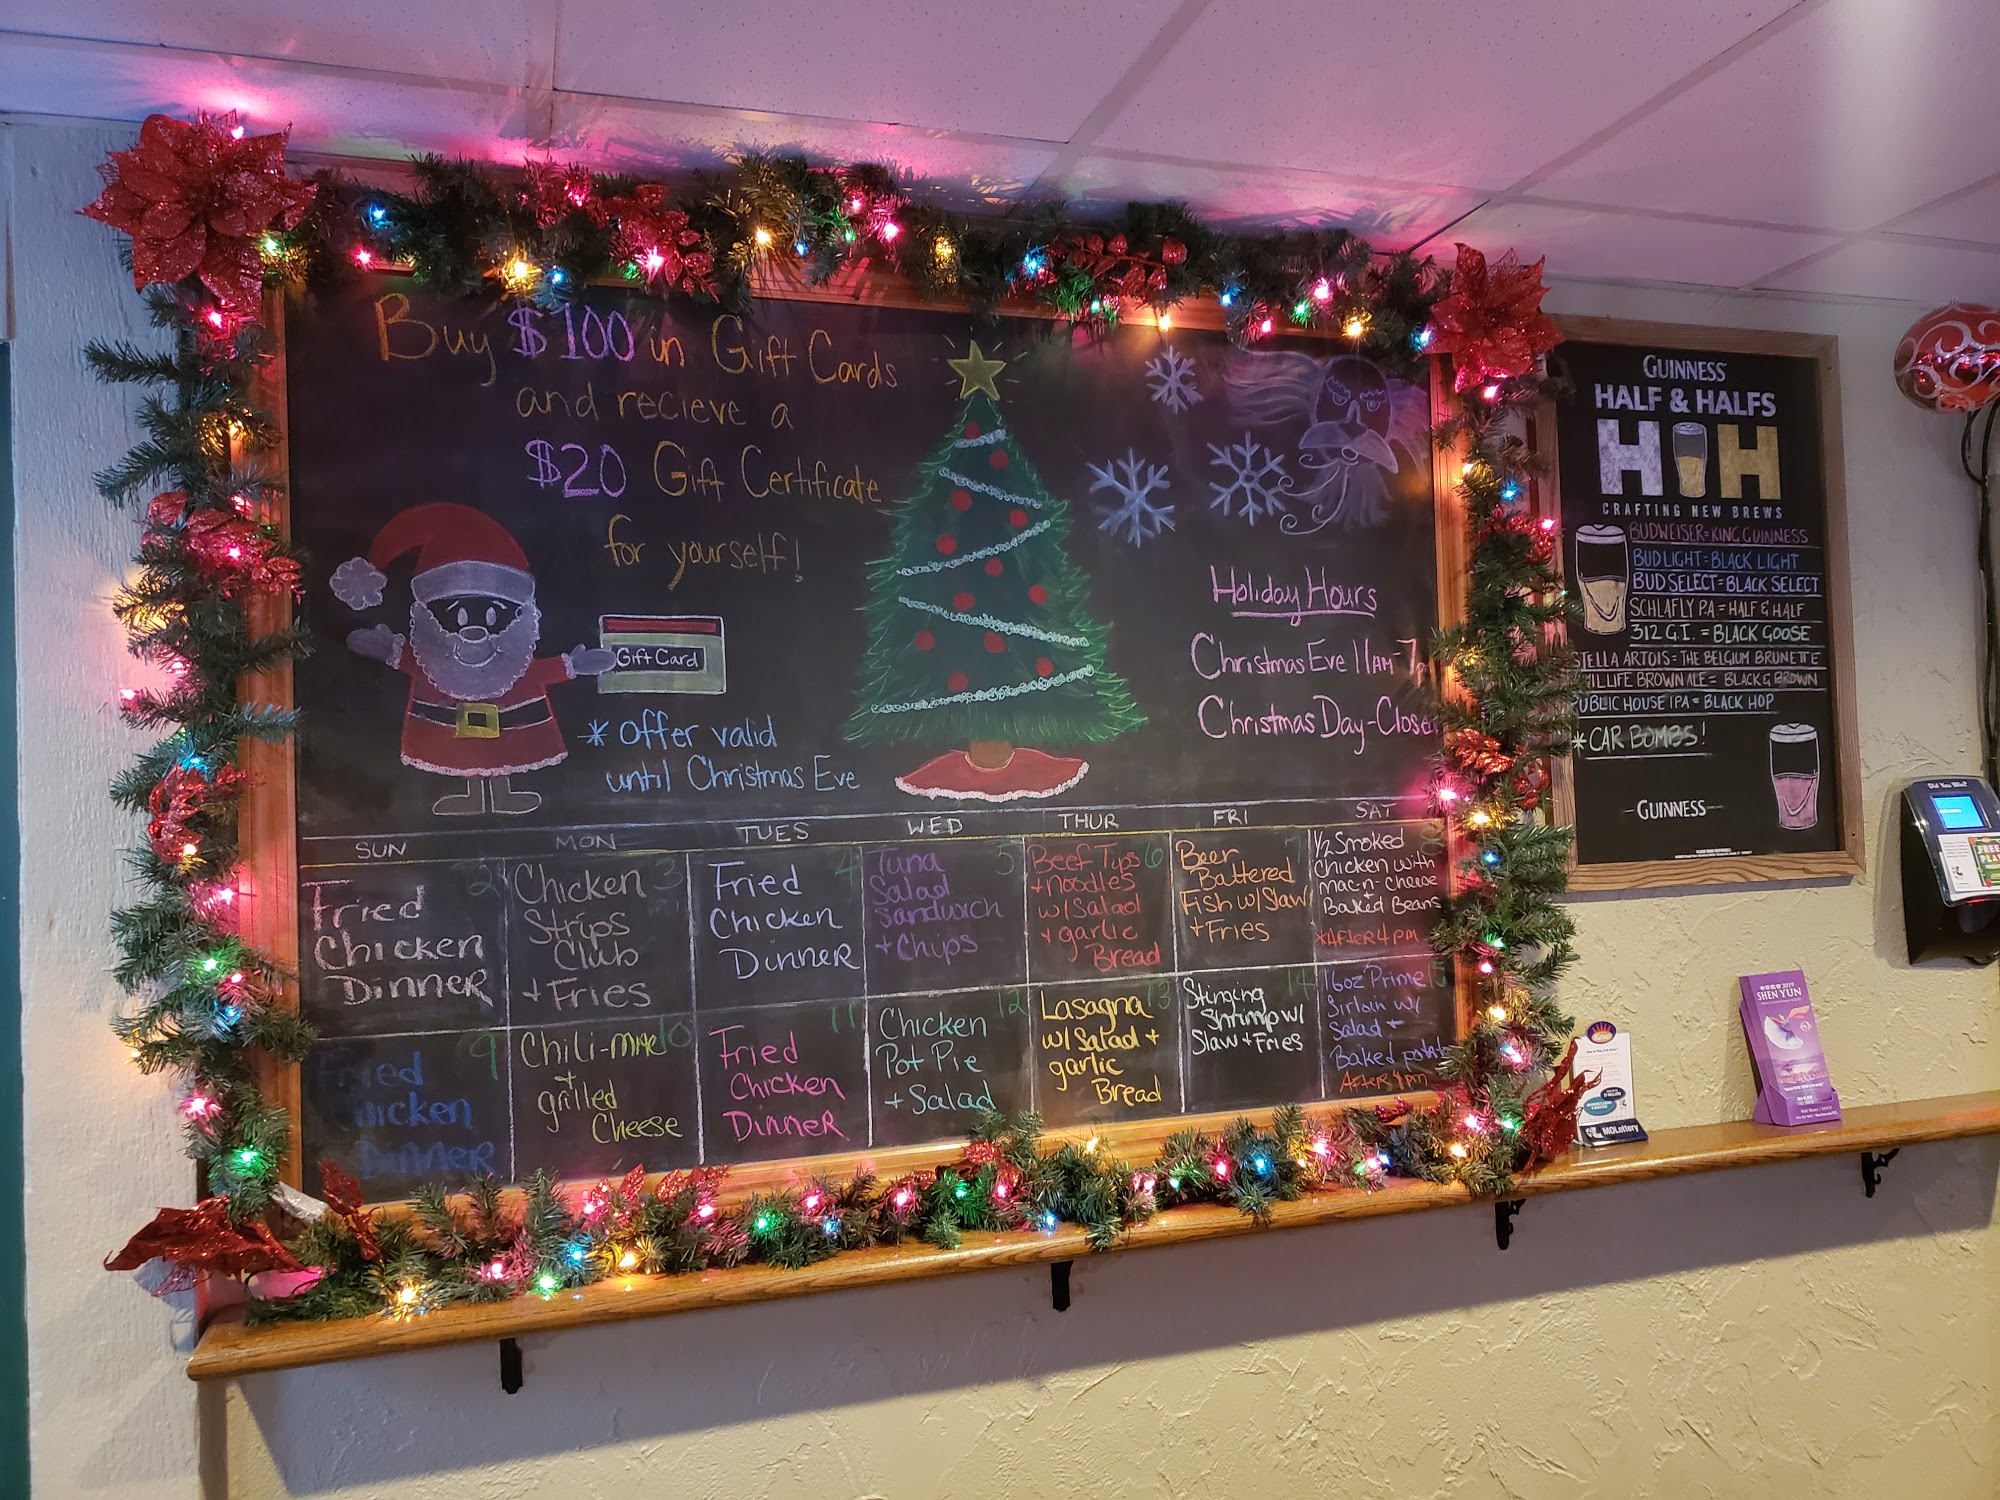 Buy $100 in Gift Cards
and recieve a
$20 Gift Certificate
for yourself!
Gift Card
* Offer valid
until Christmas Eve
Holiday Hours
Christmas Eve 11AM-7
Christmas Day-Close
SUN
MON
TUES
WED
THUR
FRI
SAT
2
Fried
Chicken
Dinner
3
Chicken
Strips
Club
+ Fries
4
Fried
Chicken
Dinner
5
Tuna
Salad
Sandwich
+ Chips
6
Beef Tips
+ noodles
w/ Salad
+ garlic
Bread
7
Beer
Battered
Fish w/ Slaw
+ Fries
8
1/2 Smoked
Chicken with
mac-n-cheese
+
Baked Beans
*After 4pm
9
Fried
Chicken
Dinner
10
Chili-mac
+
grilled
Cheese
11
Fried
Chicken
Dinner
12
Chicken
Pot Pie
+ Salad
13
Lasagna
w/ Salad +
garlic
Bread
14
Stinging
Shrimp w/
Slaw + Fries
15
16oz Prime
Sirloin w/
Salad +
Baked potato
After 4pm
GUINNESS
HALF & HALFS
H H
CRAFTING NEW BREWS
BUDWEISER=KING GUINNESS
BUD LIGHT=BLACK LIGHT
BUD SELECT=BLACK SELECT
SCHLAFLY PA = HALF & HALF
312 G.I. = BLACK GOOSE
STELLA ARTOIS=THE BELGIUM BRUNETTE
BROWN ALE = BLACK & BROWN
PUBLIC HOUSE IPA = BLACK HOP
* CAR BOMBS!
GUINNESS
Did You Win?
FREE
PLAY
MOLottery
2019
SHEN YUN